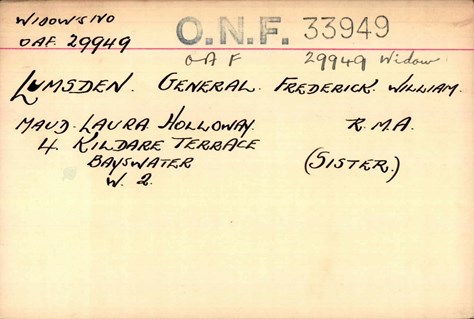 WIDOWS NO
OAF. 29949
O.N.F. 33949
OAF 29949 Widow
LUMSDEN. GENERAL. FREDERICK. WILLIAM.
MAUD. LAURA. HOLLOWAY. R.M.A.
4 KILDARE TERRACE
BAYSWATER (SISTER.)
W. 2.